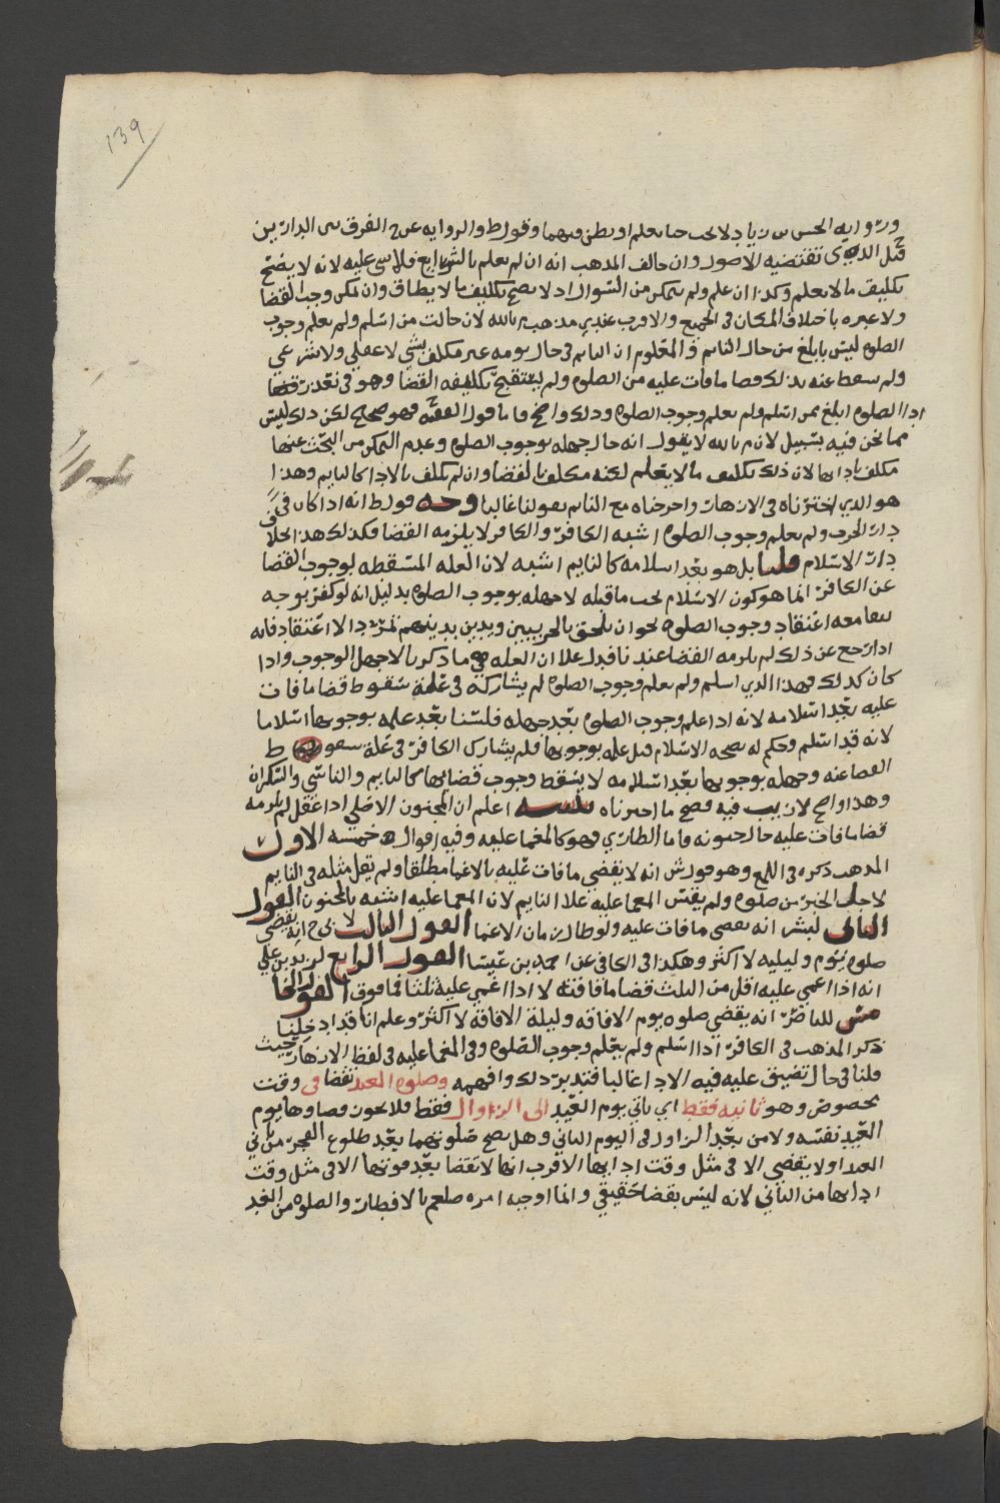 139
ورواية الحسن بن زياد لا يجب حتى يعلم او يظن وجوبها وقول ط والرواية عن ح الفرق بين الدارين
قيل الذي تقتضيه الاصول وان خالف المذهب انه ان لم يعلم بالشرايع فلا شي عليه لانه لا يصح
تكليف ما لا يعلم وكذا ان علم ولم يتمكن من السوال اذ لا يصح تكليف ما لا يطاق وان تمكن وجب القضا
ولا عبره باختلاف المكان في الجميع والاقرب عندي مذهب م بالله لان حالة من اسلم ولم يعلم وجوب
الصلوه ليس بابلغ من حال النايم والمعلوم ان النايم في حال نومه غير مكلف بشي لا عقلي ولا شرعي
ولم يسقط عنه بذلك قضا ما فات عليه من الصلوه ولم يستقبح تكليفه القضا وهو في تعذر
ادا الصلوه ابلغ ممن اسلم ولم يعلم وجوب الصلوه وذلك واضح فاما قول الفقيه فهو صحيح لكن ذلك ليس
مما نحن فيه بسبيل لان م بالله لا يقول انه حال جهله بوجوب الصلوه وعدم التمكن من البحث عنها
مكلف بادايها لان ذلك تكليف ما لا يعلم لكنه مكلف بالقضا وان لم يكلف بالادا كالنايم وهذا
هو الذي اخترناه في الازهار واخرجناه مع النايم بقولنا غالبا وجه قول ط انه اذا كان في
دار الحرب ولم يعلم وجوب الصلوه اشبه الكافر والكافر لا يلزمه القضا فكذلك هذا بخلاف
دار الاسلام قلنا بل هو بعد اسلامه كالنايم اشبه لان العله المسقطه لوجوب القضا
عن الكافر انما هو كون الاسلام يجب ما قبله لا جهله بوجوب الصلوه بدليل انه لو كفر بوجه
يبقا معه اعتقاد وجوب الصلوه نحو ان يلحق بالحربيين ويدين بدينهم الا اعتقاد فانه
اذا رجع عن ذلك لم يلزمه القضا عندنا فدل على ان العله هي ما ذكرنا لا جهل الوجوب واذا
كان كذلك فهذا الذي اسلم ولم يعلم وجوب الصلوه لم يشاركه في علة سقوط قضا ما فات
عليه بعد اسلامه لانه اذا علم وجوب الصلوه بعد جهله فلسنا نعد علمه بوجوبها اسلاما
لانه قد اسلم وحكم له بصحه الاسلام قبل علمه بوجوبها فلم يشارك الكافر في علة سقوط
القضا عنه وجهله بوجوبها بعد اسلامه لا يسقط وجوب قضايها كالنايم والناسي والسكران
وهذا واضح لا ريب فيه فصح ما اخترناه تنبيه اعلم ان المجنون الاصلي اذا عقل لم يلزمه
قضا ما فات عليه حال جنونه فاما الطاري فهو كالمغما عليه وفيه اقوال خمسه الاول
المذهب ذكره في اللمع وهو قول ش انه لا يقضي ما فات عليه بالاغما مطلقا ولم يقل مثله في النايم
لاجل الخبر من صلوه ولم يقس المغما عليه علا النايم لان المغما عليه اشبه بالمجنون القول
الثاني انه يقضي ما فات عليه ولو طال زمان الاغما القول الثالث لابي ح انه يقضي
صلوه يوم وليله لا اكثر وهكذا في الكافي عن احمد بن عيسا القول الرابع لزيد بن علي
انه اذا اغمي عليه اقل من الثلث قضا ما فاته لا اذا اغمي عليه ثلثا فما فوق القول الخا
مس للناصر انه يقضي صلوه يوم الافاقه وليلة الافاقه لا اكثر وعلم انا قد ادخلنا
ذكر المذهب في الكافر اذا اسلم ولم يعلم وجوب الصلوه وفي المغما عليه في لفظ الازهار حيث
قلنا في حال تضيق عليه فيه الادا غالبا فتدبر ذلك وافهمه وصلوه العيد تقضا في وقت
مخصوص وهو ثانيه فقط اي ثاني يوم العيد الى الزوال فقط فلا يجوز قضاوها يوم
العيد نفسه ولا من بعد الزوال في اليوم الثاني وهل يصح صلوتهما بعد طلوع الفجر من ثاني
العيد او لا يقضي الا في مثل وقت ادايها الاقرب انها لا تقضا بعد فوتها الا في مثل وقت
ادايها من الثاني لانه ليس بقضا حقيقي وانما اوجبه امره صلعم بالافطار والصلوه من الغد